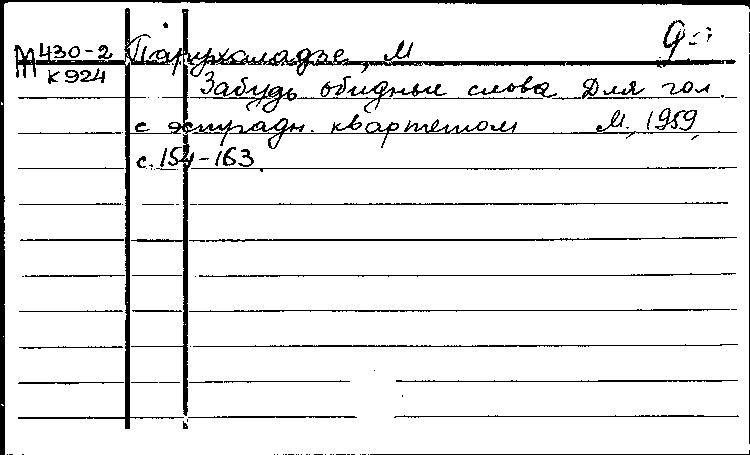 М 430-2 Парцхаладзе, М
К 924
Забудь обидные слова Для гол.
с эстрадн. квартетом М, 1959,
с. 154-163.